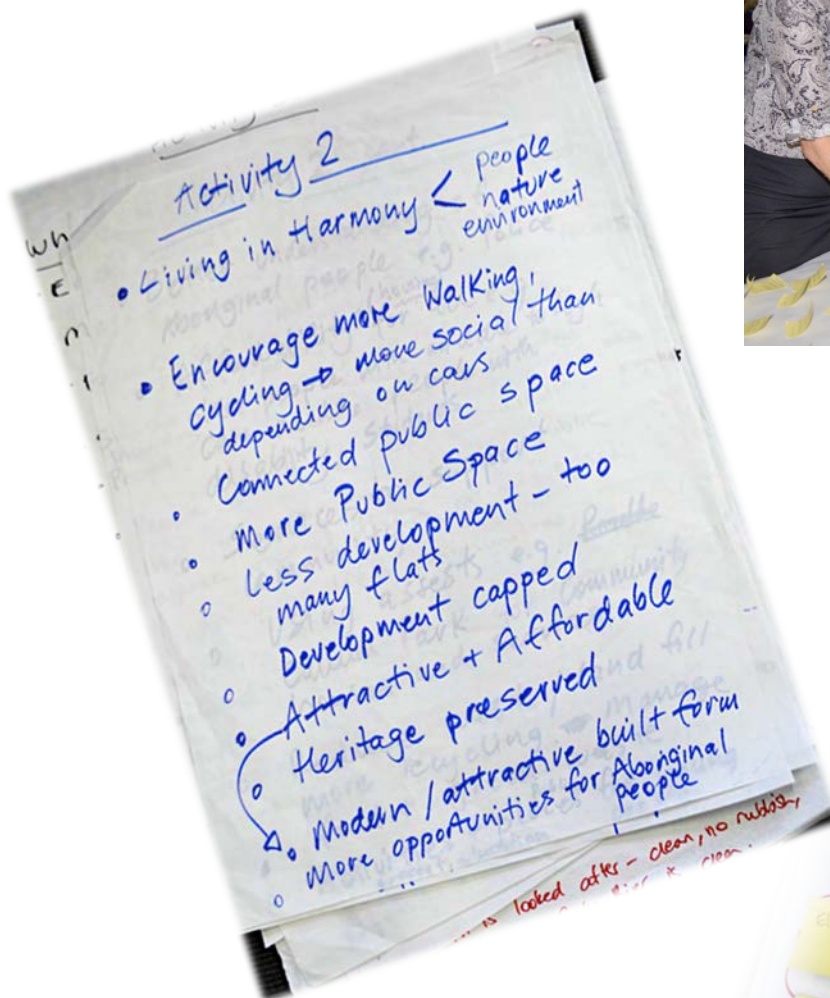 Activity 2
• Living in Harmony < people
nature
environment
• Encourage more Walking,
cycling → more social than
depending on cars
• Connected public space
• More Public Space
• Less development - too
many flats
• Development capped
• Attractive + Affordable
• Heritage preserved
• Modern / attractive built form
• More opportunities for Aboriginal
people
is looked after - clean, no rubbish,